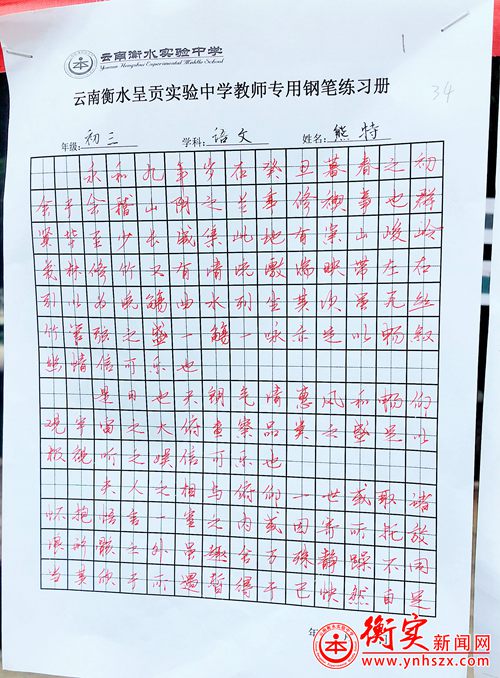 云南衡水实验中学
Yunnan Hengshui Experimental Middle School
云南衡水呈贡实验中学教师专用钢笔练习册
1
34
年级: 初三 学科: 语文 姓名: 熊特
永和九年岁在癸丑暮春之初
会于会稽山阴之兰亭修禊事也群
贤毕至少长咸集此地有崇山峻岭
茂林修竹又有清流激湍映带左右
引以为流觞曲水列坐其次虽无丝
竹管弦之盛一觞一咏亦足以畅叙
幽情信可乐也
是日也天朗气清惠风和畅仰
观宇宙之大俯查察品类之盛足以
极视听之娱信可乐也
夫人之相与俯仰一世或取诸
怀抱悟言一室之内或因寄所托放
浪形骸之外虽趣舍万殊静躁不同
当其欣于所遇暂得于己快然自足
年
衡实新闻网
www.ynhszx.com